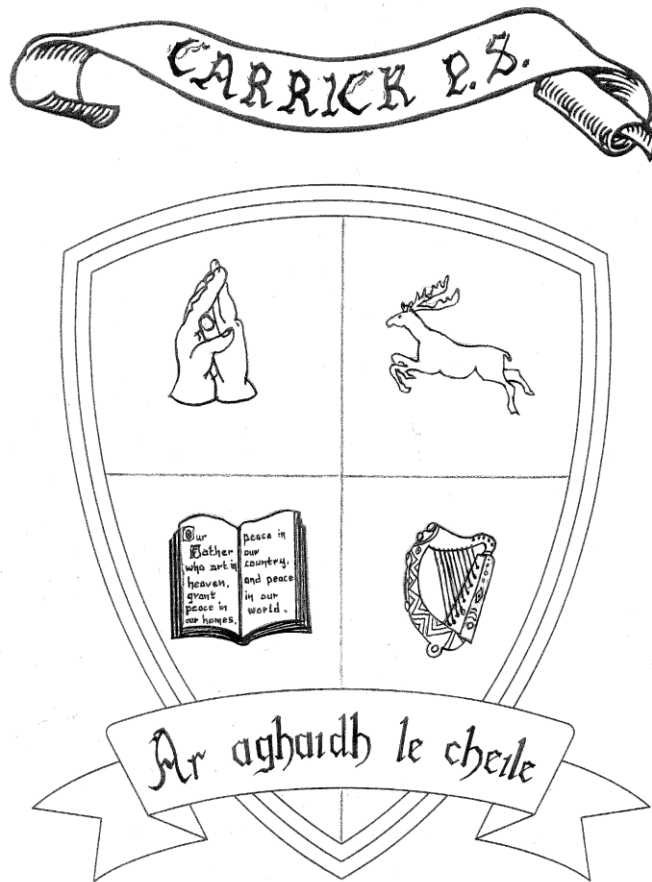 CARRICK P.S.
Our
Father
who art in
heaven,
grant
peace in
our homes,
peace in
our
country,
and peace
in our
world.
Ar aghaidh le cheile